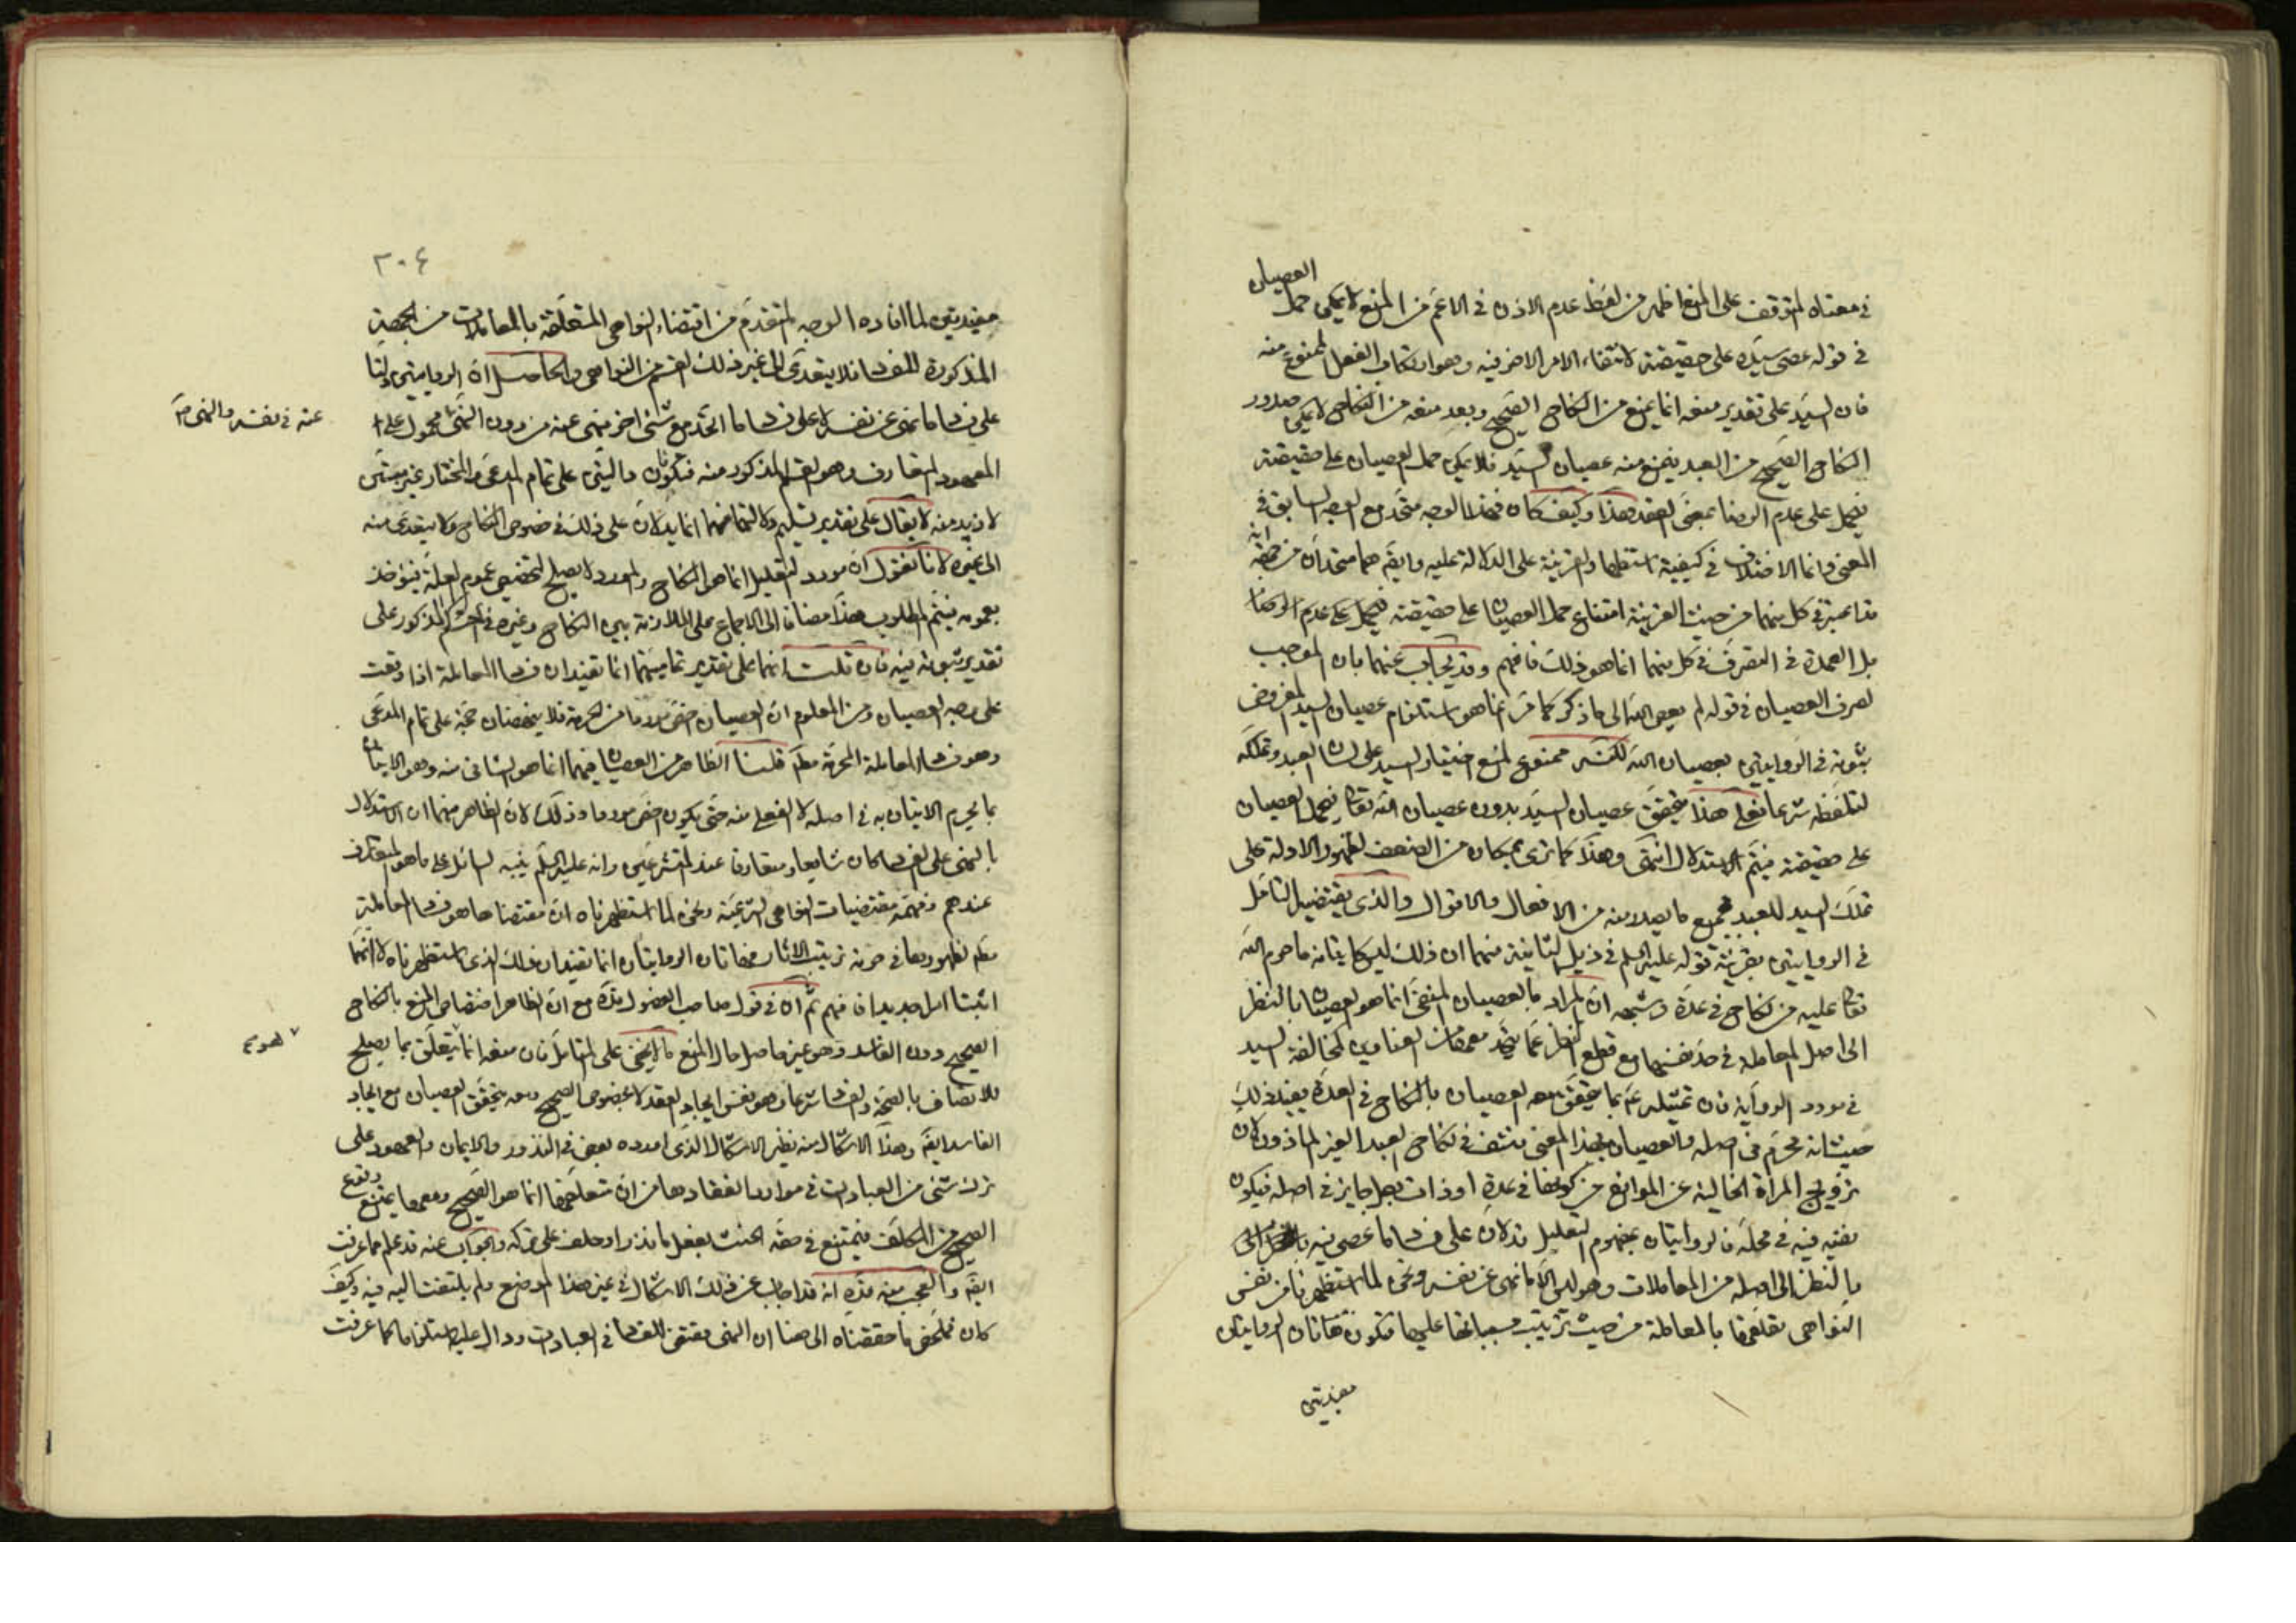 العصيان
في معناه المتوقف على المنع اظهر من لفظ عدم الاذن في الاعم من المنع لا يمكن حمل
في قوله عصى سيده على حقيقته لانتفاء الامر الاخر فيه وهو ارتكاب الفعل الممنوع منه
فان السيد على تقدير منعه انما يمنع من النكاح الصحيح وبعد منعه من النكاح لا يمكن صدور
النكاح الصحيح من العبد يمتنع منه عصيان السيد فلا يمكن حمل العصيان على حقيقته
فيحمل على عدم الرضا بمعنى العقد هذا وكيف كان فهذا الوجه متحد مع الوجه السابق في
المعنى وانما الاختلاف في كيفية استظهار القرينة على الدلالة عليه وايضا هما متحدان من جهة انه
قد اعتبر في كل منهما من حيث القرينة امتناع حمل العصيان على حقيقته فيحمل على عدم الرضا
بل العمدة في التصرف في كل منهما انما هو ذلك فافهم وقد يجاب عنهما بان الموجب
لصرف العصيان في قوله لم يعص الله الى ما ذكر كما مر انما هو استلزام عصيان السيد المفروض
ثبوته في الروايتين بعصيان الله لكنه ممنوع لمنع اختيار السيد على لسان العبد وتملكه
لتلفظه شرعا فعلى هذا يتحقق عصيان السيد بدون عصيان الله تعالى فيحمل العصيان
على حقيقته فيتم الاستدلال انتهى وهذا كما ترى بمكان من الضعف لظهور الادلة على
تملك السيد للعبد بجميع ما يصدر منه من الافعال والاقوال والذي يقتضيه التأمل
في الروايتين بقرينة قوله عليه السلم في ذيل الثانية منهما ان ذلك ليس كاتيانه ما حرم الله
تعالى عليه من نكاح في عدة وشبهه ان المراد بالعصيان المنفي انما هو العصيان بالنظر
الى اصل المعاملة في حد نفسها مع قطع النظر عما يتحد معها من العناوين كمخالفة السيد
في مورد الرواية فان تمثيله عم بما يتحقق معه العصيان بالنكاح في العدة يفيد ذلك
حيث انه محرم في اصله والعصيان بهذا المعنى منتف في نكاح العبد الغير الماذون لان
تزويج المراة الخالية عن الموانع من كونها في عدة او ذات بعل جايز في اصله فيكون
نفيه فيه في محله فالروايتان بمفهوم التعليل تدلان على فساد ما عصي فيه
بالنظر الى اصله من المعاملات وهو ليس الا ما نهى عن نفسه ونحن لما استظهرنا من نفس
النواهي تعلقها بالمعاملة من حيث ترتيب مسبباتها عليها فتكون هاتان الروايتان
مفيدتين
٣٠٤
مفيدتين لما افاده الوجه المتقدم من اقتضاء النواهي المتعلقة بالمعاملات من الجهة
المذكورة للفساد فلا يتعدى الى غير ذلك القسم من النواهي والحاصل ان الروايتين دلتا
على فساد ما نهى عن نفسه لا على فساد ما اتحد مع شئ اخر منهي عنه من دون النهي محمول على
عنه في نفسه والنهي
المعهود المتعارف وهو القسم المذكور منه فتكونان دالتين على تمام المدعى والمختار غير مبتنى
لازيد منه لا يقال على تقدير تسليم دلالتهما فهما انما يدلان على ذلك في خصوص النكاح ولا يتعدى منه
الى غيره لانا نقول ان مورد التعليل انما هو النكاح والمورد لا يصلح لتخصيص عموم العلة فيؤخذ
بعمومه فيتم المطلوب هذا مضافا الى الاجماع على الملازمة بين النكاح وغيره في الحكم المذكور على
تقدير ثبوته فيه فان قلت انهما على تقدير تماميتهما انما تفيدان فساد المعاملة اذا وقعت
على وجه العصيان ومن المعلوم ان العصيان اخص موردا من الحرمة فلا ينهضان حجة على تمام المدعى
وهو فساد المعاملة المحرمة مطلقا قلنا الظاهر من العصيان فيهما انما هو الشاني منه وهو الاتيان
بما يحرم الاتيان به في اصله لا الفعلي منه حتى يكون اخص موردا وذلك لان الظاهر منهما ان الاستدلال
بالنهي على الفساد كان شايعا ومتعارفا عند المتشرعين وانه عليه السلم ينبه السائل على ما هو المتعارف
عندهم وفهمه مقتضيات النواهي الشرعية ونحن لما استظهرناه ان مقتضاها هو فساد المعاملة
مطلقا لظهورها في حرمة ترتيب الاثار فهاتان الروايتان انما تفيدان ذلك الذي استظهرناه لا انهما
اثبتا امرا جديدا فافهم ثم ان في قول صاحب الفصول قده مع ان الظاهر اختصاص المنع بالنكاح
الصحيح دون الفاسد وهو غير حاصل حال المنع ما لا يخفى على المتأمل فان منعه انما يتعلق بما يصلح
للاتصاف بالصحة والفساد شرعا وهو نفس ايجاد العقد لا خصوص الصحيح ومعه يتحقق العصيان مع ايجاد
الفاسد ايضا وهذا الاشكال منه نظير الاشكال الذي اورده بعض في النذور والايمان والعهود على
ترك شئ من العبادات في موارد انعقادها من ان متعلقها انما هو الصحيح ومعها يمتنع وقوع
الصحيح من المكلف فيمتنع في حقه الحنث بفعل ما نذر او حلف على تركه والجواب عنه قد علم مما عرفت
ايضا والعجب منه قده انه قد اجاب عن ذلك الاشكال في غير هذا الموضع ولم يلتفت اليه فيه وكيف
كان فملخص ما حققناه الى هنا ان النهي مقتض للفساد في العبادات ودال عليه استلزاما كما عرفت